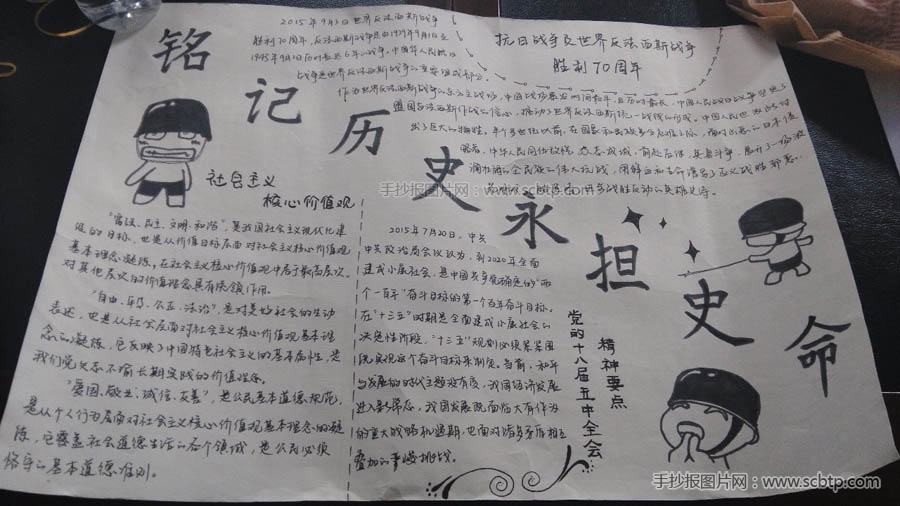 铭记历史永担史命
2015年9月3日世界反法西斯战争
胜利70周年,反法西斯战争是由1939年9月1日至
1945年9月2日历时长达6年的战争,中国军人民抗日
战争是世界反法西斯战争的重要组成部分。
抗日战争及世界反法西斯战争
胜利70周年
作为世界反法西斯战争的东方主战场,中国战场
盟国反法西斯作战的信心,推动了世界反法西斯统一战线的形成。中国人民也
出了巨大的牺牲。
略者,中华人民同仇敌忾、众志成城、前赴后继、英勇斗争,展开了一场波
澜壮阔的全民族的伟大抗战,用鲜血和生命谱写了正义战胜邪恶、
社会主义
核心价值观
"富强、民主、文明、和谐",是我国社会主义现代化建
设的目标,也是从价值目标层面对社会主义核心价值观
基本理念凝练。在社会主义核心价值观中居于最高层次,
对其他层次的价值理念具有统领作用。
"自由、平等、公正、法治",是对美好社会的生动
表述,也是从社会层面对社会主义核心价值观基本理
念的凝练,它反映了中国特色社会主义的基本属性,是
我们党矢志不渝长期实践的价值理念。
"爱国、敬业、诚信、友善",是公民基本道德规范,
是从个人行为层面对社会主义核心价值观基本理念的凝
练,它覆盖社会道德生活的各个领域,是公民必须
恪守的基本道德准则。
2015年7月20日,中共
中央政治局会议认为,到2020年全面
建成小康社会,是中国共产党确定的"两
个一百年"奋斗目标的第一个百年奋斗目标。
在"十三五"时期是全面建成小康社会的
决胜性阶段,"十三五"规划必须紧紧围
绕实现这个奋斗目标来制定。当前,和平
与发展的时代主题没有变,我国经济发展
进入新常态,我国发展既面临大有作为
的重大战略机遇期,也面对诸多矛盾相互
叠加的严峻挑战。
党的十八届五中全会
精神要点
手抄报图片网:www.scbtp.com
手抄报图片网 www.scbtp.com